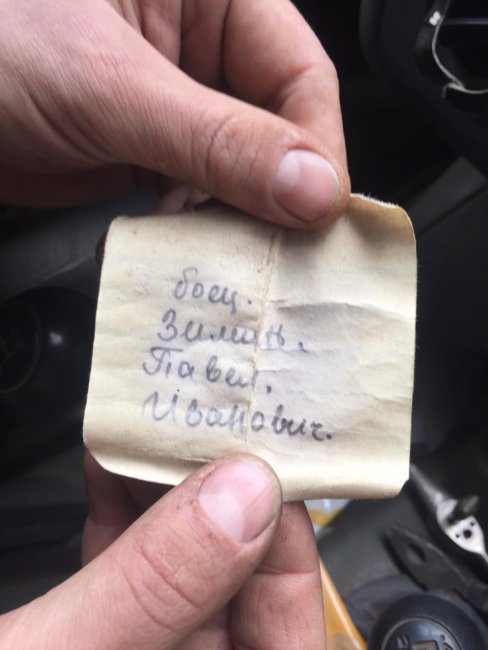 боец.
Зилин.
Павел.
Иванович.